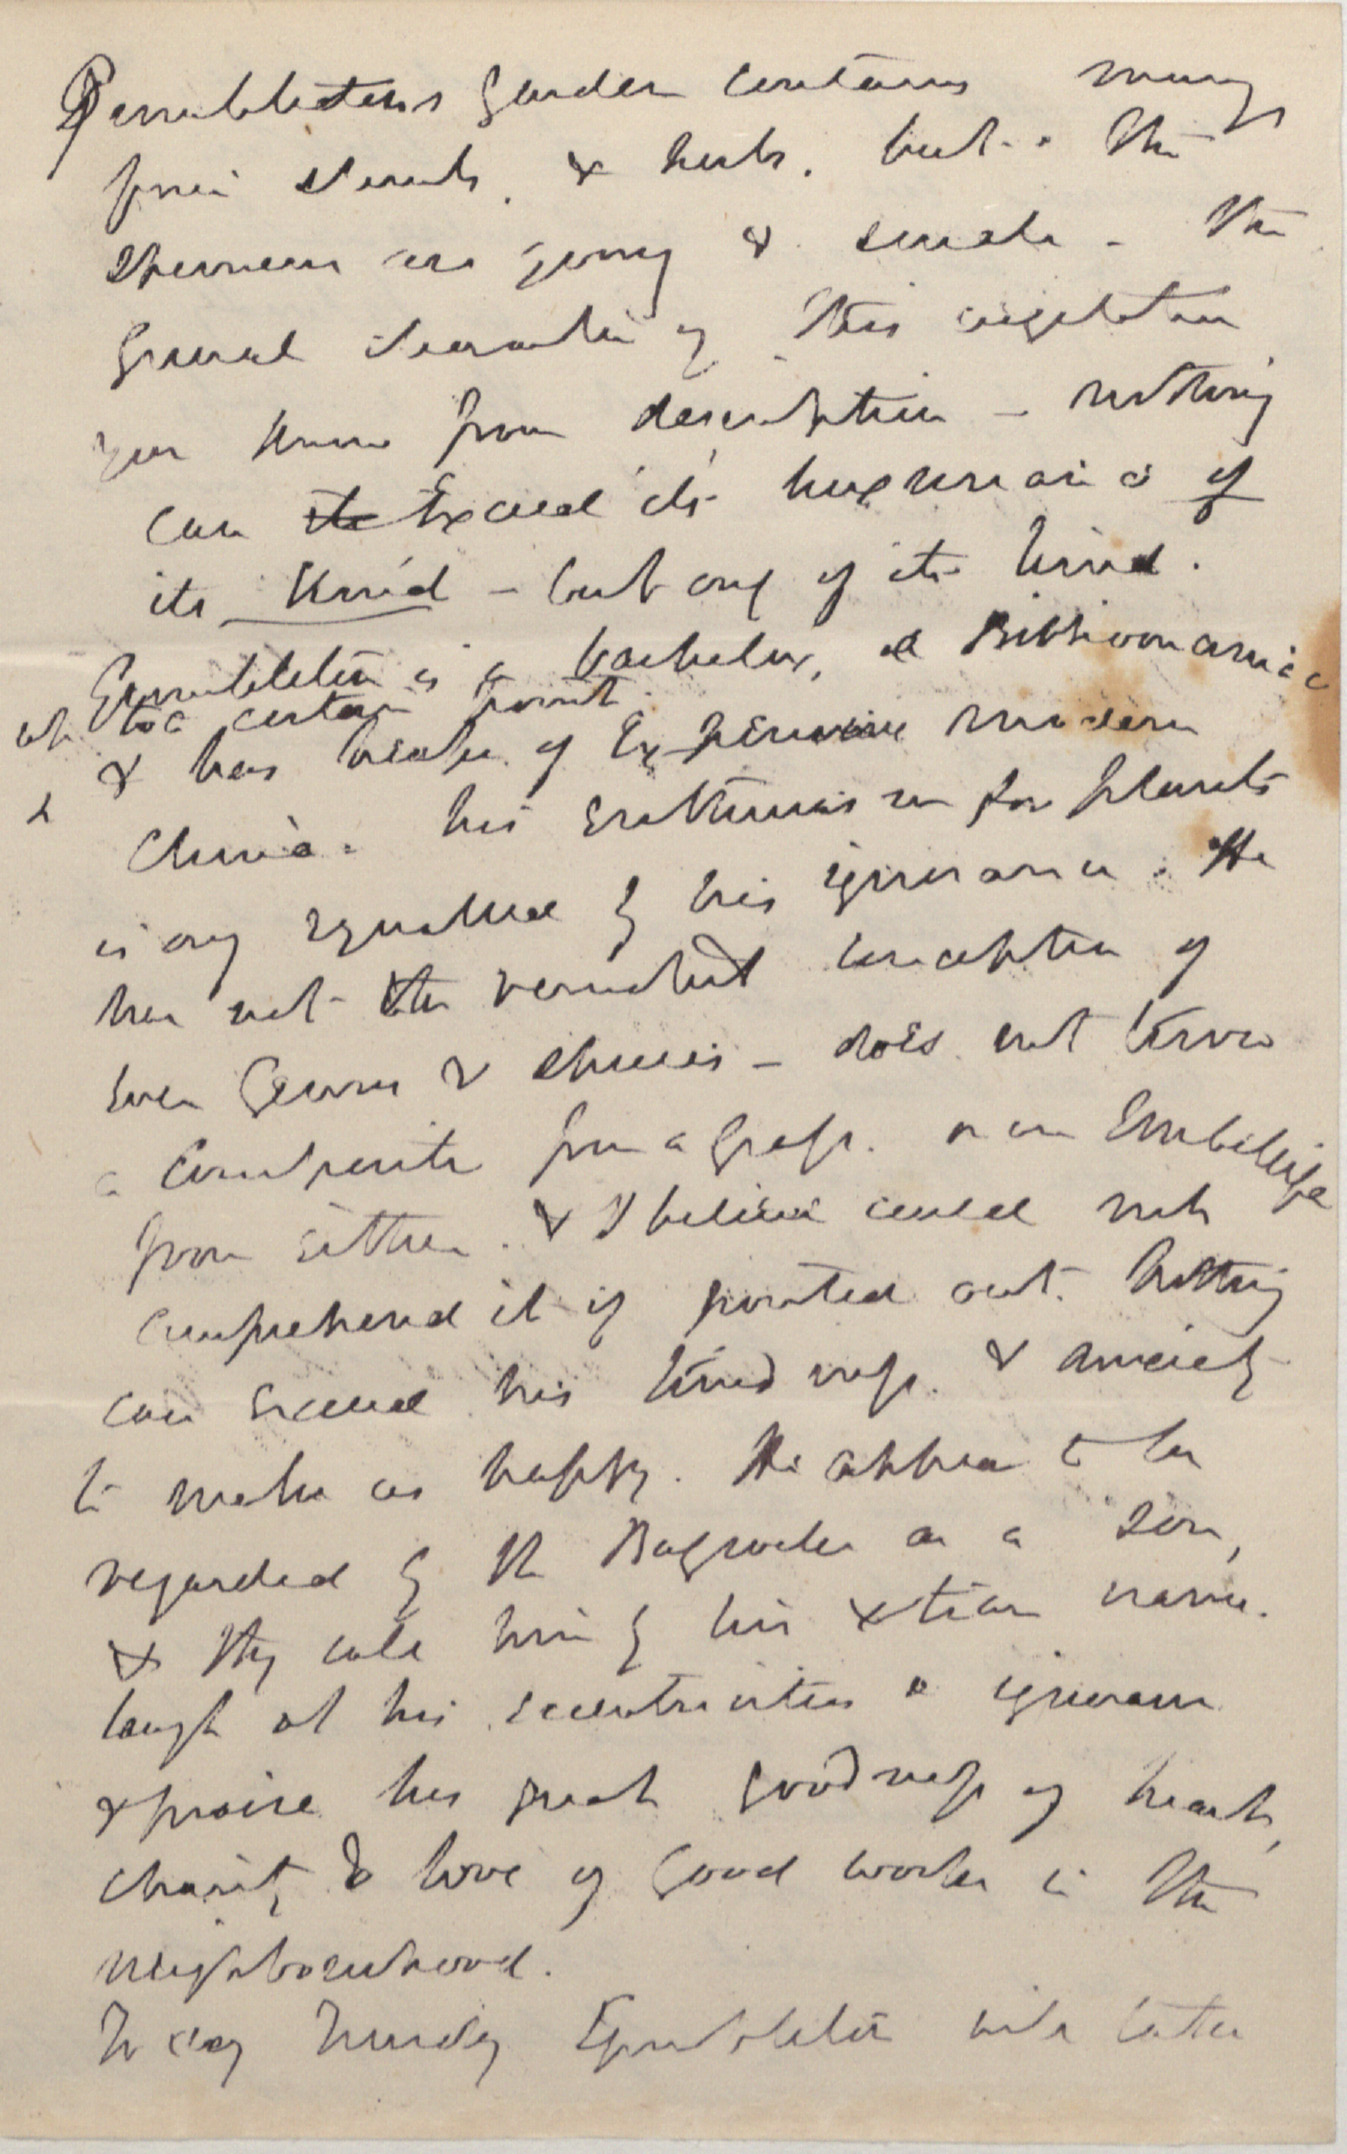 garden contains many
fine shrubs, & herbs, but the
specimens are young & small - The
general character of this vegetation
you know from description - nothing
can exceed its luxuriance of
its kind - but only of its kind.
is a bachelor, a Bibliomaniac
up to a certain point
& has heaps of Expensive modern
China. his enthusiasm for plants
is only equalled by his ignorance. He
has not the remotest conception of
even Genera & species - does not know
a Composite from a grass. or an Umbellifer
from either. & I believe could not
comprehend it if pointed out. Nothing
can exceed his kindness. & anxiety
to make us happy. He appears to be
regarded by the as a son,
& they call him by his xtian name.
laugh at his eccentricities & ignorance
& praise his great goodness of heart,
charity & love of good works in the
neighbourhood.
To day Thursday will take